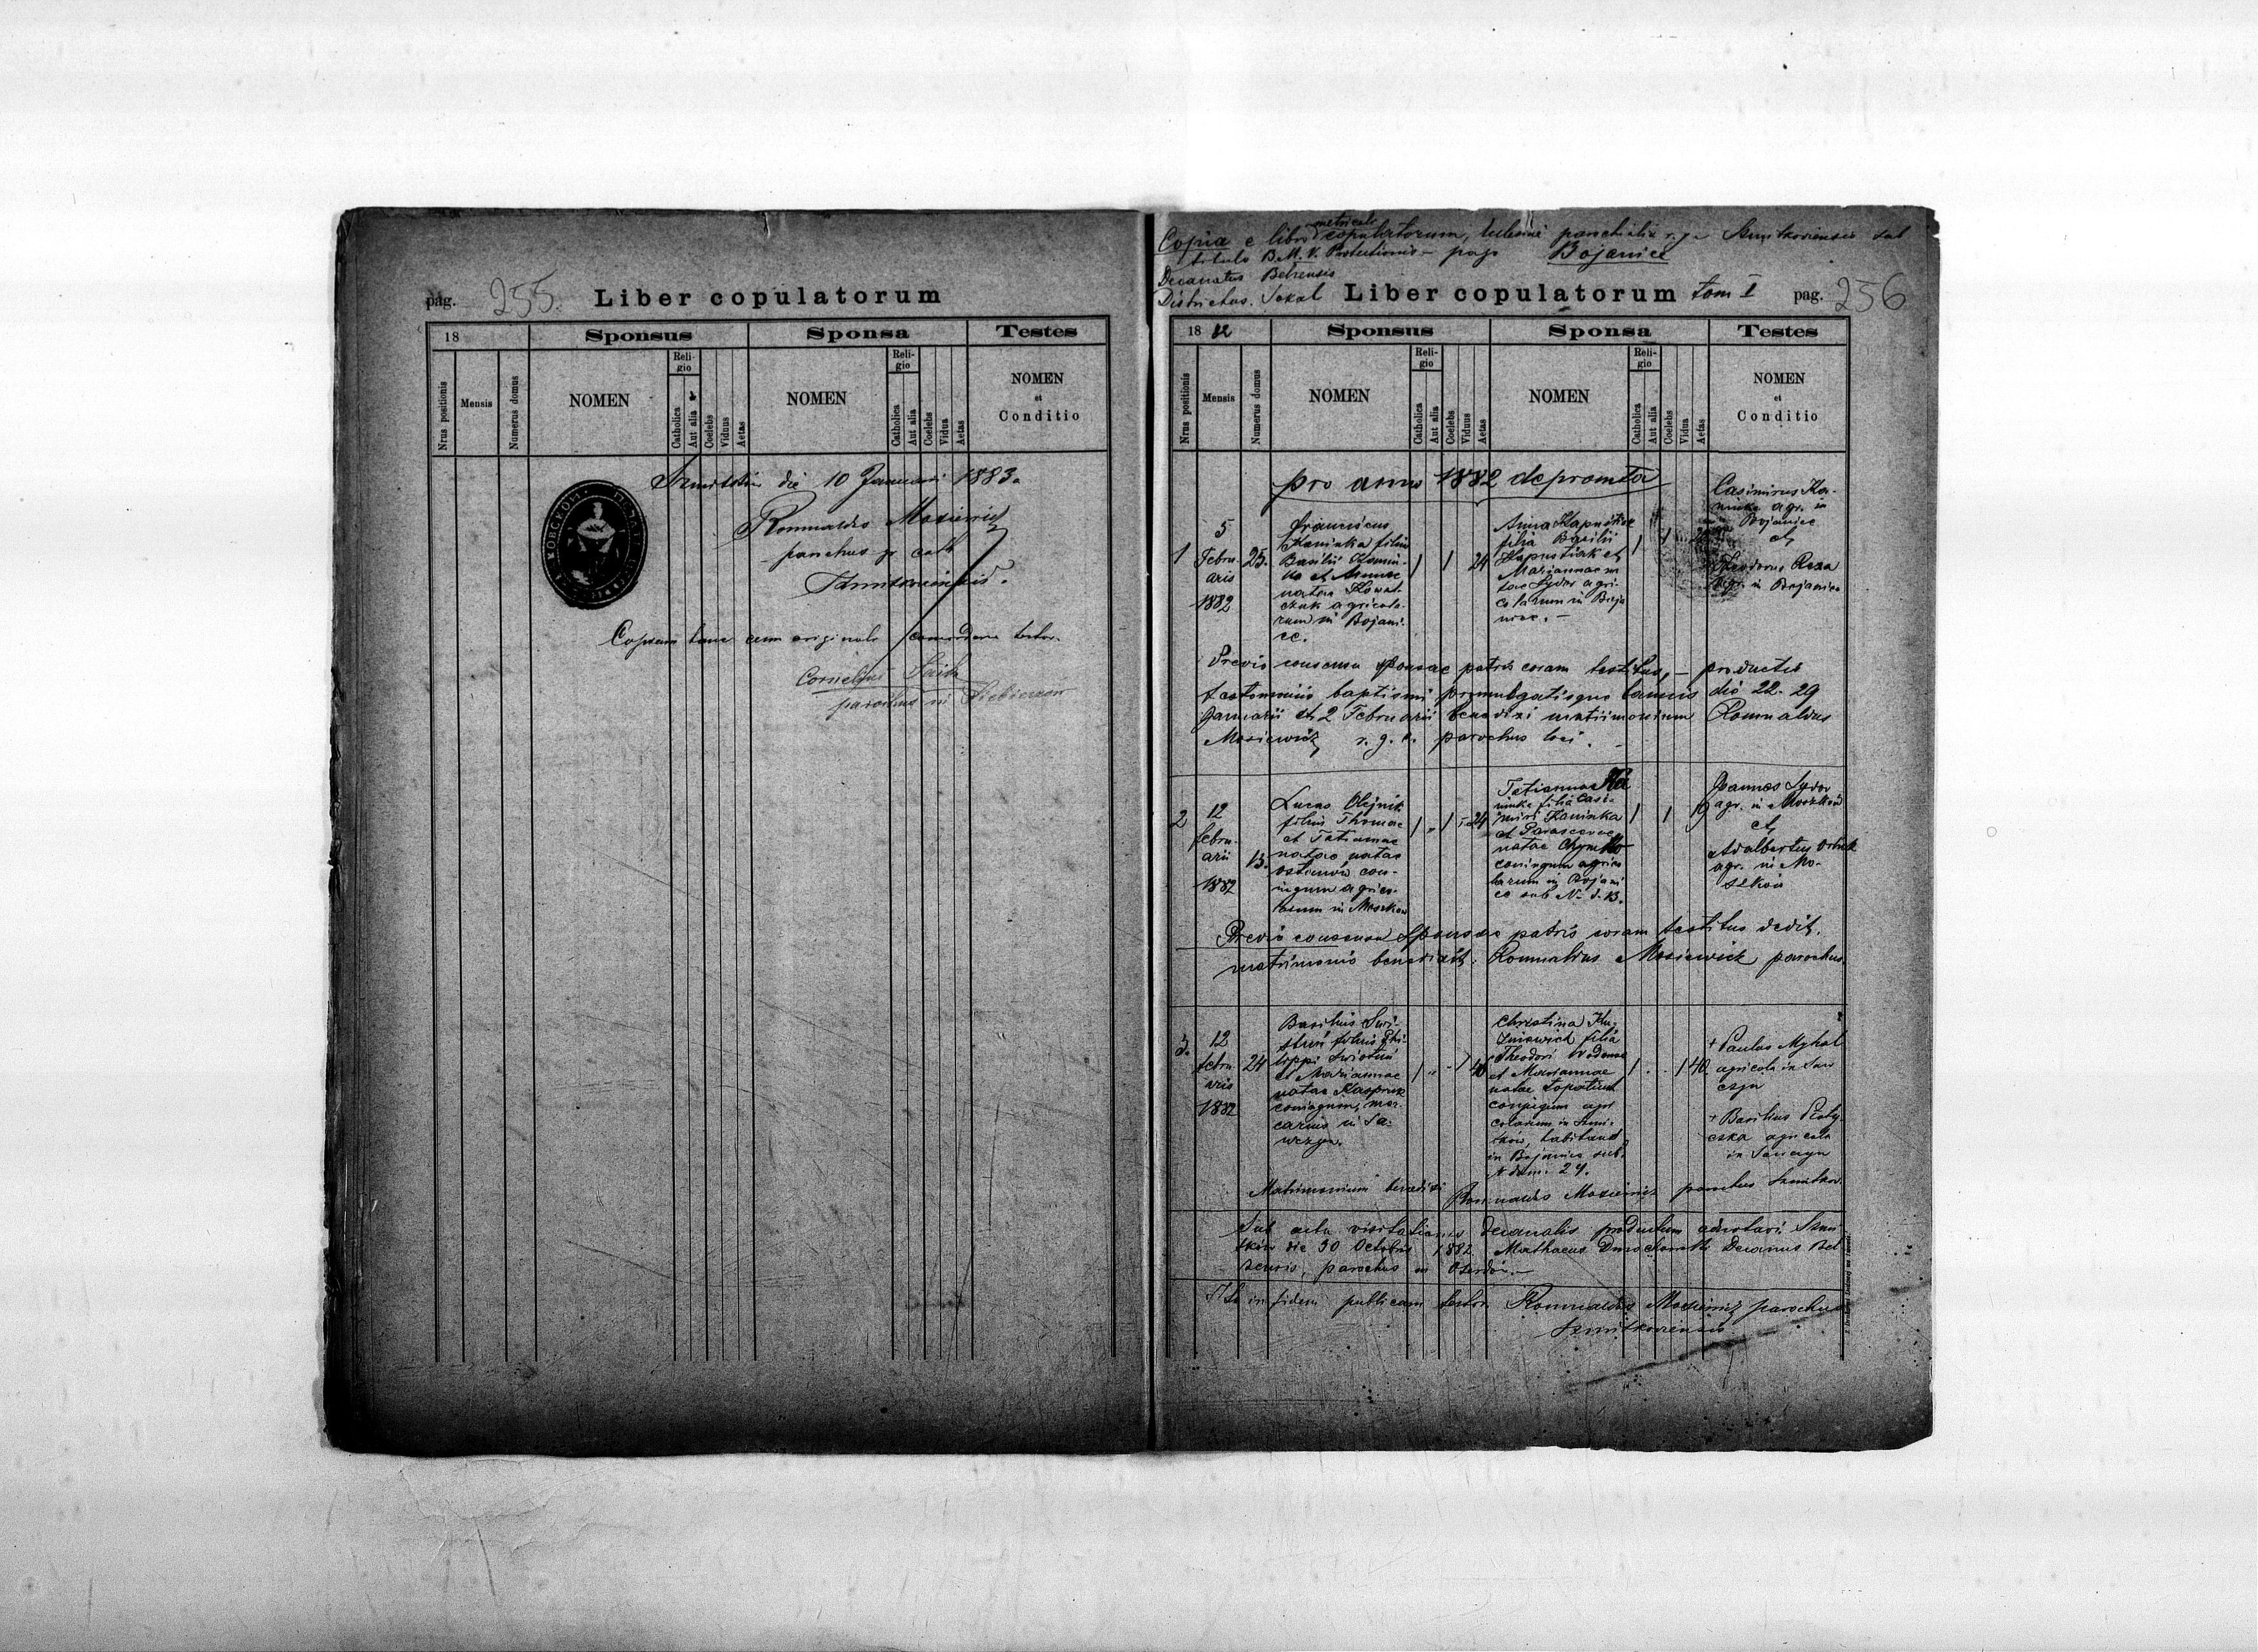 pag. 255. Liber copulatorum
18 Sponsus Sponsa Testes
Nrus positionis Mensis Numerus domus NOMEN Religio Catholica Aut alia Coelebs Viduus Aetas NOMEN Religio Catholica Aut alia Coelebs Vidua Aetas NOMEN et Conditio
die 10 Januarii 1883.
Romualdus Mosiewicz
parochus gr. cath.
Szmitkoviensis.
Copiam hanc cum originale concordare testor.
Cornelius
parochus in
Copia e libro metricali copulatorum, ecclesiae parochialis r. g. c. Szmitkoviensis sub
titulo B. M. V. Protectionis – pago Bojanice
Decanatus Belzensis
Districtus. Sokal Liber copulatorum tom I pag. 256
18 82 Sponsus Sponsa Testes
Nrus positionis Mensis Numerus domus NOMEN Religio Catholica Aut alia Coelebs Viduus Aetas NOMEN Religio Catholica Aut alia Coelebs Vidua Aetas NOMEN et Conditio
pro anno 1882 depromta
1
5
Febru-
aris
1882
25.
Franciscus
Kaminka filius
Basilii Kamin-
ka et Annae
natae Kowal-
czuk agricola-
rum in Bojani-
ce.
1 1 24
Anna
filia Basilii
Kapustiak et
Mariannae na
tae Sydor agri-
colarum in Boja
nice. –
1 1
Casimirus Ka-
minka agr. in
Bojanice
et
Theodorus
agr. in Bojanice
Previo consensu sponsae patris coram testibus, – productis
testimoniis baptismi promulgatisque bannis die 22. 29
Januarii et 2 Februarii benedixi matrimonium Romualdus
Mosiewicz r. g. c. parochus loci.
2
12
febru-
arii
1882
13.
Lucas Olejnik
filius Thomae
et Tatianae
natae natae
con-
jugum agrico-
larum in Moszkow
1 " 1 24
Tatianna Ka
minka filia Casi-
miri Kaminka
et Parascevae
natae
conjugum agrico
larum in Bojani
ce sub N. d. 13.
1 1 19
Joannes Sydor
agr. in Moszków
et
Adalbertus
agr. in Mo-
szków
Previo consensu Sponsae patris coram testibus dedit.
matrimonio benedixit. Romualdus Mosiewicz parochus.
3.
12
febru-
aris
1882
24
Basilius Swi-
filius Phi-
lippi
et Mariannae
natae Kaspruk
conjugum, mer-
carius in Sa-
wczyn.
1 " - 1 46
Christina
filia
Theodori
et Mariannae
natae
conjugum agri
colarum in Szmi-
tków, habitand
in Bojanice sub.
N dom. 24.
1 . . 1 40
+ Paulus Myhal
agricola in Saw
czyn
+ Basilius
agricola
in Sawczyn
Matrimonium benedixi Romualdus Mosiewicz parochus Szmitkow.
Sub actu visitationis decanalis productum adnotavi Szmi-
tków die 30 Octobris 1882 Mathaeus Decanus Bel-
zensis, parochus in
in fidem publicam testor. Romualdus Mosiewicz parochus
Szmitkoviensis